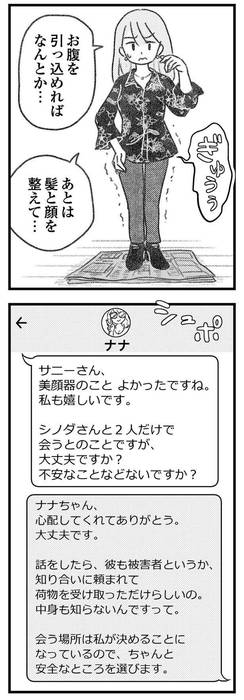 お腹を
引っ込めれば
なんとか…
ぎゅうぅ
あとは
髪と顔を
整えて…
シュポ
←
ナナ
サニーさん、
美顔器のこと よかったですね。
私も嬉しいです。
シノダさんと2人だけで
会うとのことですが、
大丈夫ですか？
不安なことなどないですか？
ナナちゃん、
心配してくれてありがとう。
大丈夫です。
話をしたら、彼も被害者というか、
知り合いに頼まれて
荷物を受け取っただけらしいの。
中身も知らないんですって。
会う場所は私が決めることに
なっているので、ちゃんと
安全なところを選びます。